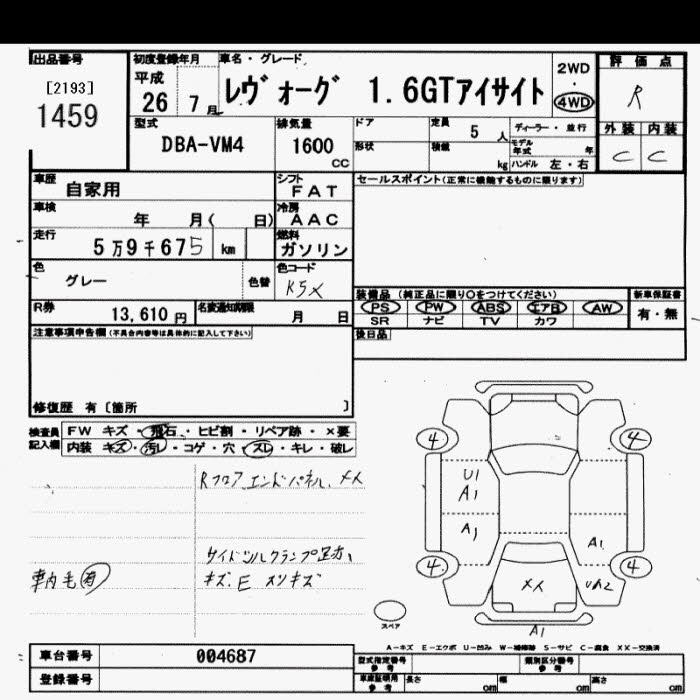 出品番号 初度登録年月 車名・グレード 評価点
[2193] 平成 2WD
1459 26 7月 レヴォーグ 1.6GTアイサイト ・ 4WD R
型式 排気量 ドア 定員 5 人 ディーラー・並行 外装 内装
DBA-VM4 1600 CC 形状 積載 kg モデル年式 年 C C
ハンドル 左・右
車歴 自家用 シフト FAT セールスポイント(正常に機能するものに限ります)
車検 年 月( 日) 冷房 AAC
走行 5万9千675 km 燃料 ガソリン
色 グレー 色替 色コード K5X
装備品 (純正品に限り○をつけてください) 新車保証書
R券 13,610円 名変通知期限 月 日 PS PW ABS エアB AW 有・無
SR ナビ TV カワ
注意事項申告欄(不具合内容等は具体的に記入して下さい) 後日品
修復歴 有〔箇所 〕
検査員記入欄 FW キズ・飛石・ヒビ割・リペア跡・×要
内装 キズ・汚レ・コゲ・穴・スレ・キレ・破レ
Rフロア エンドパネル メX
サイドシルクランプ足有、
車内毛 有 キズ.E スリキズ
4 4
U1
A1
A1 A1
4 4
XX UA2
スペア A1
A-キズ E-エクボ U-凹み W-補修跡 S-サビ C-腐食 XX-交換済
車台番号 004687 型式指定番号 参考 類別区分番号 参考
登録番号 車庫証明用 参考 長さ cm 幅 cm 高さ cm